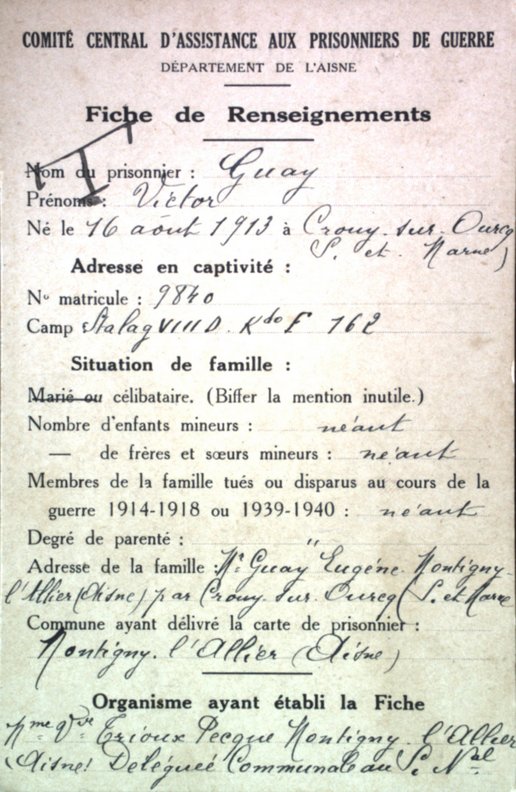 COMITÉ CENTRAL D'ASSISTANCE AUX PRISONNIERS DE GUERRE
DÉPARTEMENT DE L'AISNE
Fiche de Renseignements
Nom du prisonnier : Guay
Prénoms : Victor
Né le 16 août 1913 à Crouy-sur-Ourcq
S. et Marne)
Adresse en captivité :
No matricule : 9840
Camp Stalag VIII D. Kdo F 162
Situation de famille :
Marié ou célibataire. (Biffer la mention inutile.)
Nombre d'enfants mineurs : néant
— de frères et sœurs mineurs : néant
Membres de la famille tués ou disparus au cours de la
guerre 1914-1918 ou 1939-1940 : néant
Degré de parenté : "
Adresse de la famille : Mr Guay Eugéne. Montigny-
l'Allier (Aisne) par Crouy-sur-Ourcq (S. et Marne
Commune ayant délivré la carte de prisonnier :
Montigny-l'Allier (Aisne)
Organisme ayant établi la Fiche
Mme Vve Trioux Pecque Montigny-l'Allier
(Aisne) Deléguée Communale au S. Nal